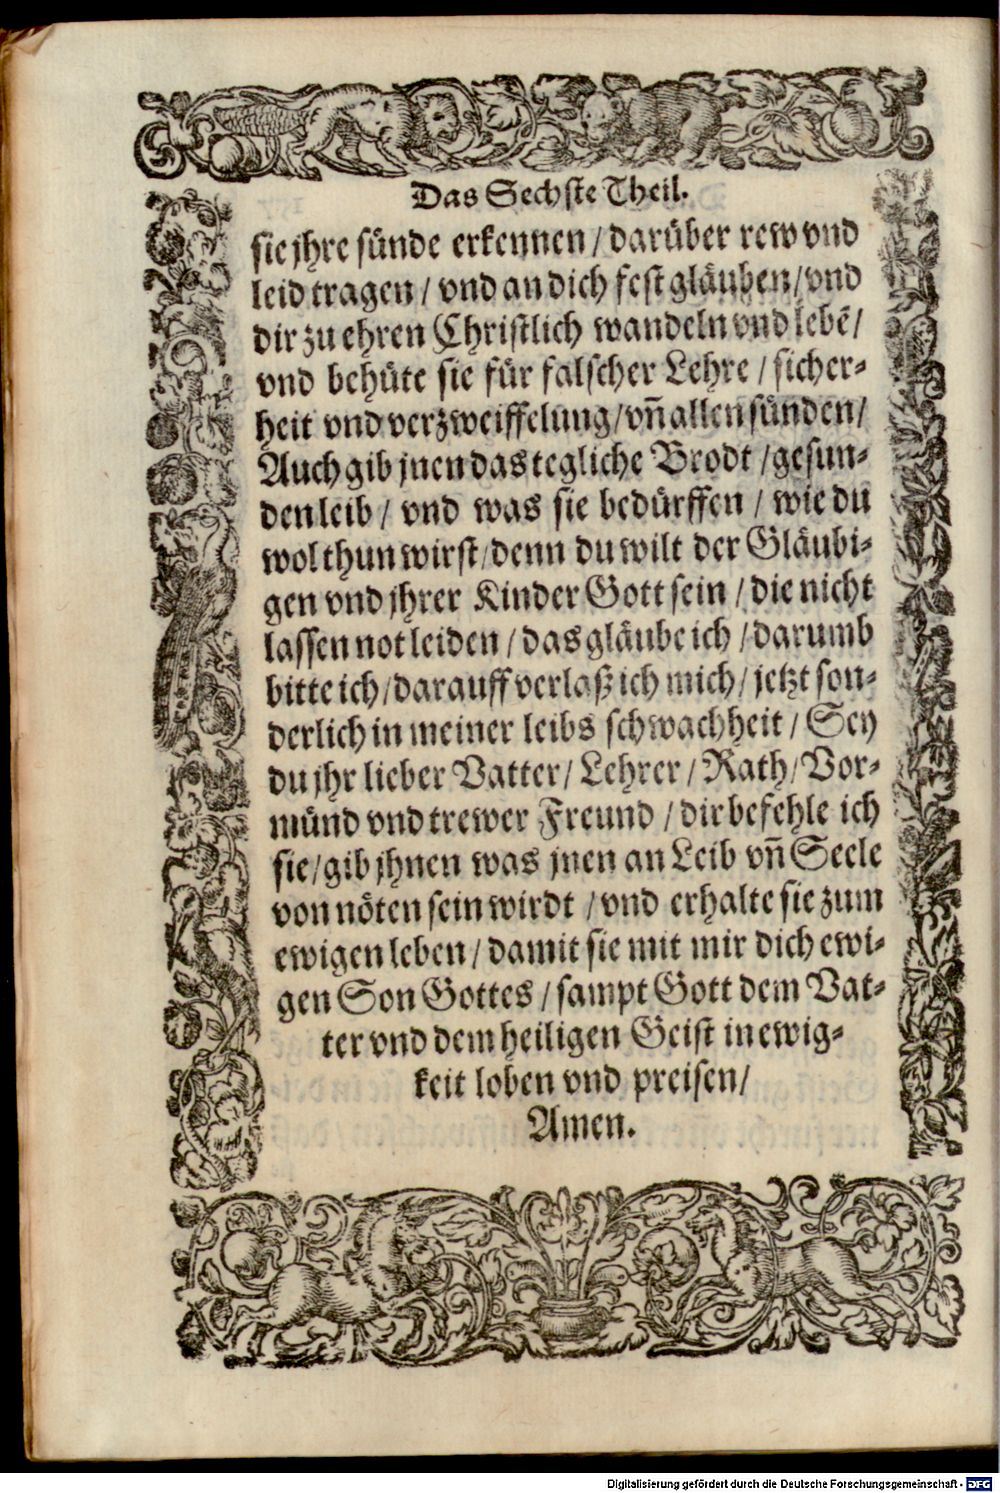 Das Sechste Theil.
sie jhre sünde erkennen / darüber rew vnd
leid tragen / vnd an dich fest gläuben / vnd
dir zu ehren Christlich wandeln vnd lebē /
vnd behüte sie für falscher Lehre / sicher-
heit vnd verzweiffelung / vñ allen sünden /
Auch gib jnen das tegliche Brodt / gesun-
den leib / vnd was sie bedürffen / wie du
wol thun wirst / denn du wilt der Gläubi-
gen vnd jhrer Kinder Gott sein / die nicht
lassen not leiden / das gläube ich / darumb
bitte ich / darauff verlaß ich mich / jetzt son-
derlich in meiner leibs schwachheit / Sey
du jhr lieber Vatter / Lehrer / Rath / Vor-
münd vnd trewer Freund / dir befehle ich
sie / gib jhnen was jnen an Leib vñ Seele
von nöten sein wirdt / vnd erhalte sie zum
ewigen leben / damit sie mit mir dich ewi-
gen Son Gottes / sampt Gott dem Vat-
ter vnd dem heiligen Geist in ewig-
keit loben vnd preisen /
Amen.
Digitalisierung gefördert durch die Deutsche Forschungsgemeinschaft - DFG